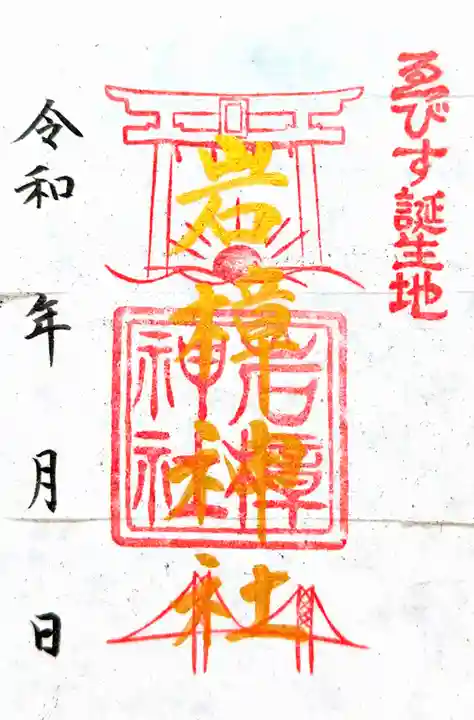 ゑびす誕生地
岩樟神社
岩樟神社
令和 年 月 日